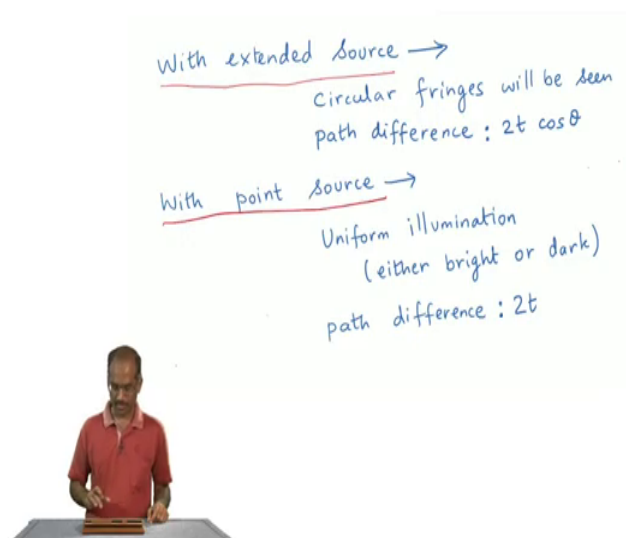 With extended source →
Circular fringes will be seen
path difference : 2t cosθ
With point source →
Uniform illumination
(either bright or dark)
path difference : 2t